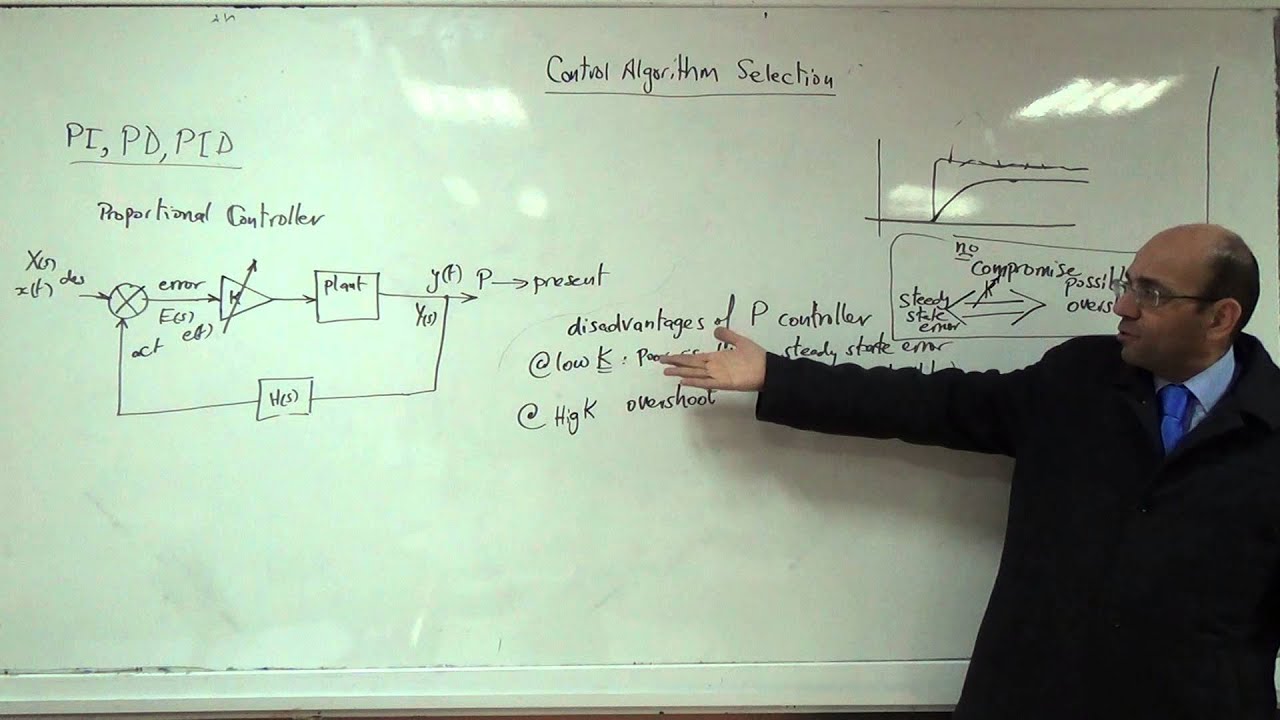 Control Algorithm Selection
PI, PD, PID
Proportional Controller
X(s)
x(t) des
error
E(s)
e(t)
act
K
plant
y(t)
Y(s)
H(s)
P → present
disadvantages of P controller
@ low K : steady starte error
@ Hig K overshoot
no
compromise
steady
state
error
K